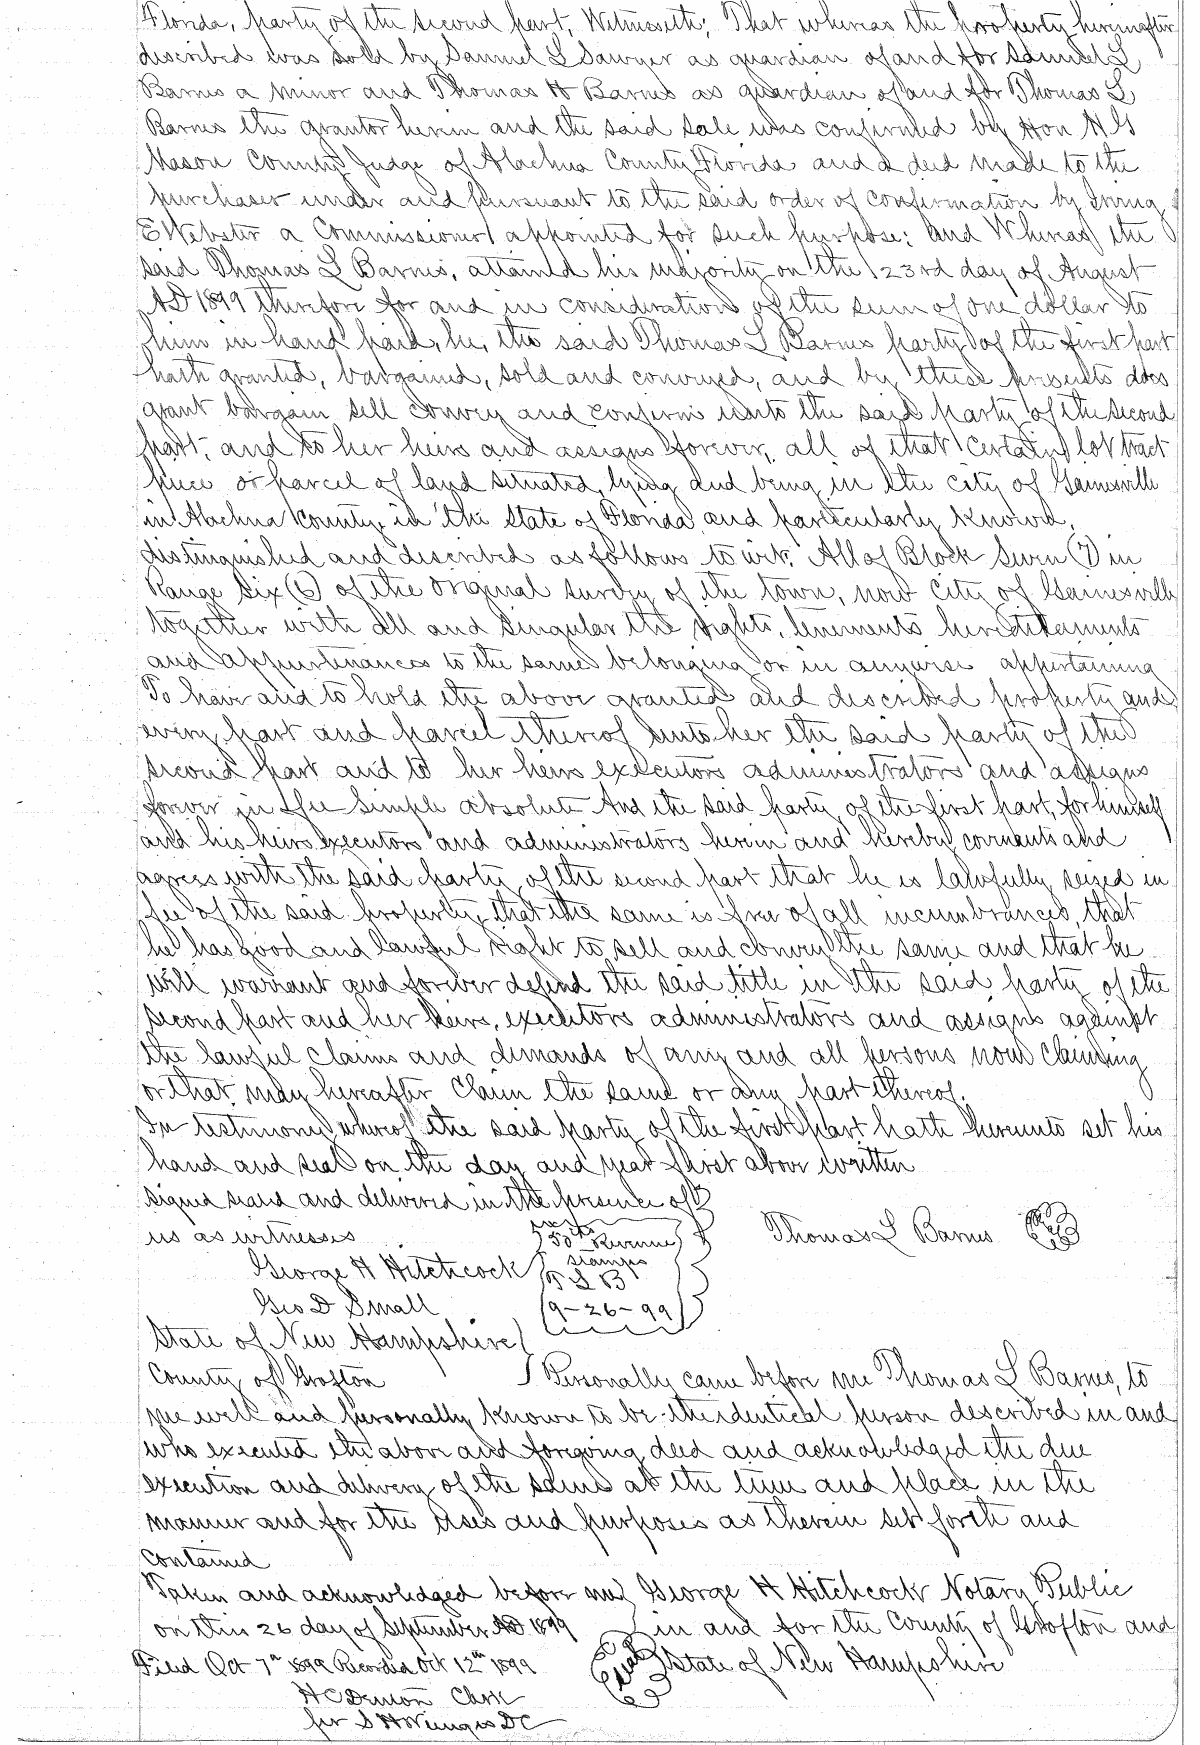 Florida, party of the second part, Witnesseth; That whereas the property hereinafter
described was sold by Samuel L Sawyer as guardian of and for Samuel L
Barnes a minor and Thomas H Barnes as guardian of and for Thomas L
Barnes the grantor herein and the said sale was confirmed by Hon H G
Mason County Judge of Alachua County Florida and a deed made to the
purchaser under and pursuant to the said order of confirmation by Irving
E Webster a Commissioner appointed for such purpose; and Whereas the
said Thomas L Barnes, attained his majority on the 23rd day of August
AD 1899 therefore for and in consideration of the sum of one dollar to
him in hand paid, he, the said Thomas L Barnes party of the first part
hath granted, bargained, sold and conveyed, and by these presents does
grant bargain sell convey and confirm unto the said party of the second
part, and to her heirs and assigns forever, all of that certain lot tract
piece or parcel of land situated, lying and being in the city of Gainesville
in Alachua County in the State of Florida and particularly known,
distinguished and described as follows to wit. All of Block Seven (7) in
Range Six (6) of the original survey of the town, now City of Gainesville
together with all and singular the rights, tenements hereditaments
and appurtenances to the same belonging or in anywise appertaining
To have and to hold the above granted and described property and
every part and parcel thereof unto her the said party of the
second part and to her heirs executors administrators and assigns
forever in fee simple absolute And the said party of the first part, for himself
and his heirs executors and administrators herein and hereby covenants and
agrees with the said party of the second part that he is lawfully seized in
fee of the said property, that the same is free of all incumbrances, that
he has good and lawful right to sell and convey the same and that he
will warrant and forever defend the said title in the said party of the
second part and her heirs, executors administrators and assigns against
the lawful claims and demands of any and all persons now claiming
or that may hereafter claim the same or any part thereof.
In testimony whereof the said party of the first part hath hereunto set his
hand and seal on the day and year first above written
Signed sealed and delivered in the presence of
us as witnesses Thomas L Barnes Seal
50 cts Revenue
stamps
George H Hitchcock T L B
Geo D Small 9-26-99
State of New Hampshire
County of Grafton Personally came before me Thomas L Barnes, to
me well and personally known to be the identical person described in and
who executed the above and foregoing deed and acknowledged the due
execution and delivery of the same at the time and place in the
manner and for the uses and purposes as therein set forth and
contained
Taken and acknowledged before me George H Hitchcock Notary Public
on this 26 day of September AD 1899 in and for the County of Grafton and
Filed Oct 7th 1899 Recorded Oct 12th 1899 Seal State of New Hampshire
H C Denton Clerk
per S H Wienges DC